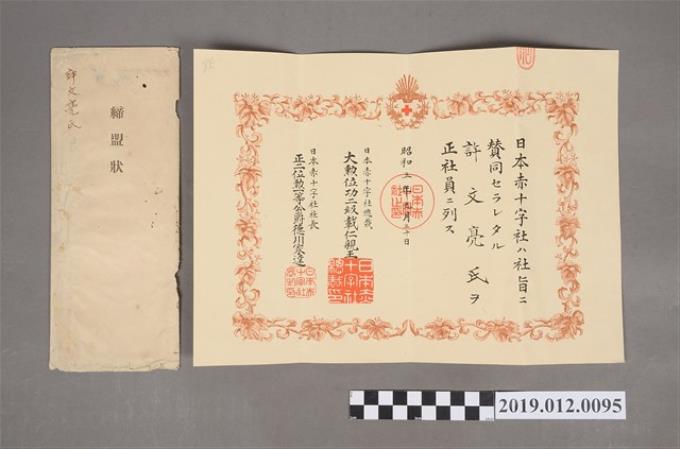 許文亮氏
締盟狀
日本赤十字社ハ社旨ニ
賛同セラレタル
許文亮氏ヲ
正社員ニ列ス
昭和 年 月三十日
日本赤十字社總裁
大勲位功二級載仁親王
日本赤十字社社長
正二位勲一等公爵德川家達
日本赤
十字社
總裁印
日本赤
十字社
長之印
2019.012.0095